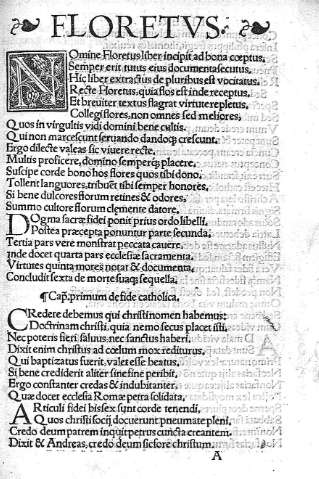 FLORETVS.
NOmine Floretus liber incipit ad bona cœptus,
Semper erit tutus eius documenta secutus,
Hic liber extractus de pluribus est vocitatus.
Recte Floretus, quia flos est inde receptus,
Et breuiter textus flagrat virtute repletus,
Collegi flores, non omnes sed meliores,
Quos in virgultis vidi domini bene cultis.
Qui non marcescunt seruando dandoq; crescunt.
Ergo dilecte valeas sic viuere recte,
Multis proficere, domino semperq; placere,
Suscipe corde bono hos flores quos tibi dono,
Tollent languores, tribuet tibi semper honores,
Si bene dulcores florum retines & odores,
Summo cultore florum clemente datore,
DOgma sacræ fidei ponit prius ordo libelli,
Postea præcepta ponuntur parte secunda,
Tertia pars vere monstrat peccata cauere.
Inde docet quarta pars ecclesiæ sacramenta,
Virtutes quinta mores notat & documenta,
Concludit sexta de morte suaq; sequella.
¶ Cap. primum de fide catholica.
CRedere debemus qui christi nomen habemus:
Doctrinam christi, quia nemo secus placet isti,
Nec poteris fieri saluus, nec sanctus haberi.
Dixit enim christus ad cœlum mox rediturus,
Qui baptizatus fuerit, valet esse beatus,
Si bene crediderit aliter sine fine peribit,
Ergo constanter credas & indubitanter,
Quæ docet ecclesia Romæ petra solidata,
ARticuli fidei bis sex sunt corde tenendi,
Quos christi socij docuerunt pneumate pleni,
Credo deum patrem inquit petrus cuncta creantem.
Dixit & Andreas, credo deum sic fore christum.
A